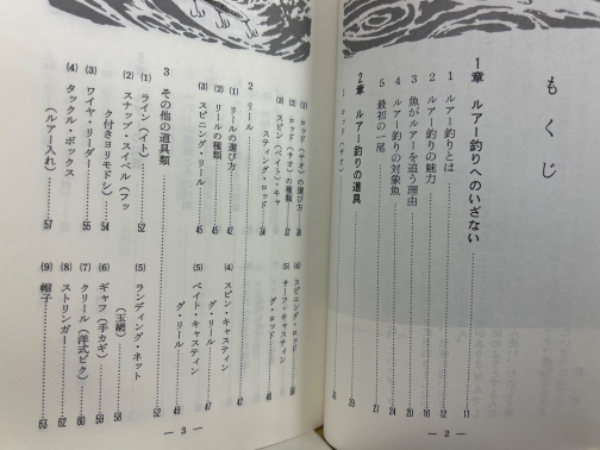 もくじ
1章 ルアー釣りへのいざない……11
1 ルアー釣りとは……12
2 ルアー釣りの魅力……16
3 魚がルアーを追う理由……20
4 ルアー釣りの対象魚……24
5 最初の一尾……27
2章 ルアー釣りの道具……29
1 ロッド(サオ)……30
— 2 —
(1) ロッド(サオ)の選び方
(2) ロッド(サオ)の種類
(3) スピン(ベイト)・キャ
スティング・ロッド……36
(4) スピニング・ロッド
(5) サーフ・キャスティン
グ・ロッド
2 リール……42
(1) リールの選び方……42
(2) リールの種類……45
(3) スピニング・リール……45
(4) スピン・キャスティン
グ・リール……47
(5) ベイト・キャスティン
グ・リール……49
3 その他の道具類……52
(1) ライン(イト)……52
(2) スナップ・スイベル(フッ
ク付きヨリモドシ)……54
(3) ワイヤ・リーダー……55
(4) タックル・ボックス
(ルアー入れ)……57
(5) ランディング・ネット
(玉網)……58
(6) ギャフ(手カギ)……59
(7) クリール(洋式ビク)……60
(8) ストリンガー……62
(9) 帽子……63
— 3 —